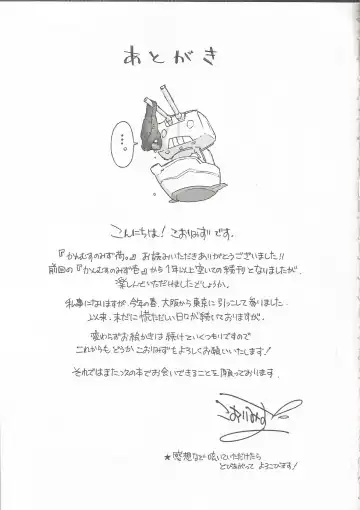 あとがき
・・・
こんにちは！こおりみずです。
『かんむすのみず 尚。』お読みいただきありがとうございました!!
前回の『かんむすのみず 壱』から1年以上空いての続刊となりましたが、
楽しんでいただけましたでしょうか。
私事になりますが、今年の春、大阪から東京に引っこして参りました。
以来、未だに慌ただしい日々が続いておりますが、
変わらずお絵かきは続けていくつもりですので
これからも、どうか、こおりみずをよろしくお願いいたします！
それではまた次の本でお会いできることを願っております。
こおりみず
★感想など呟いていただけたら
とびあがってよろこびます！